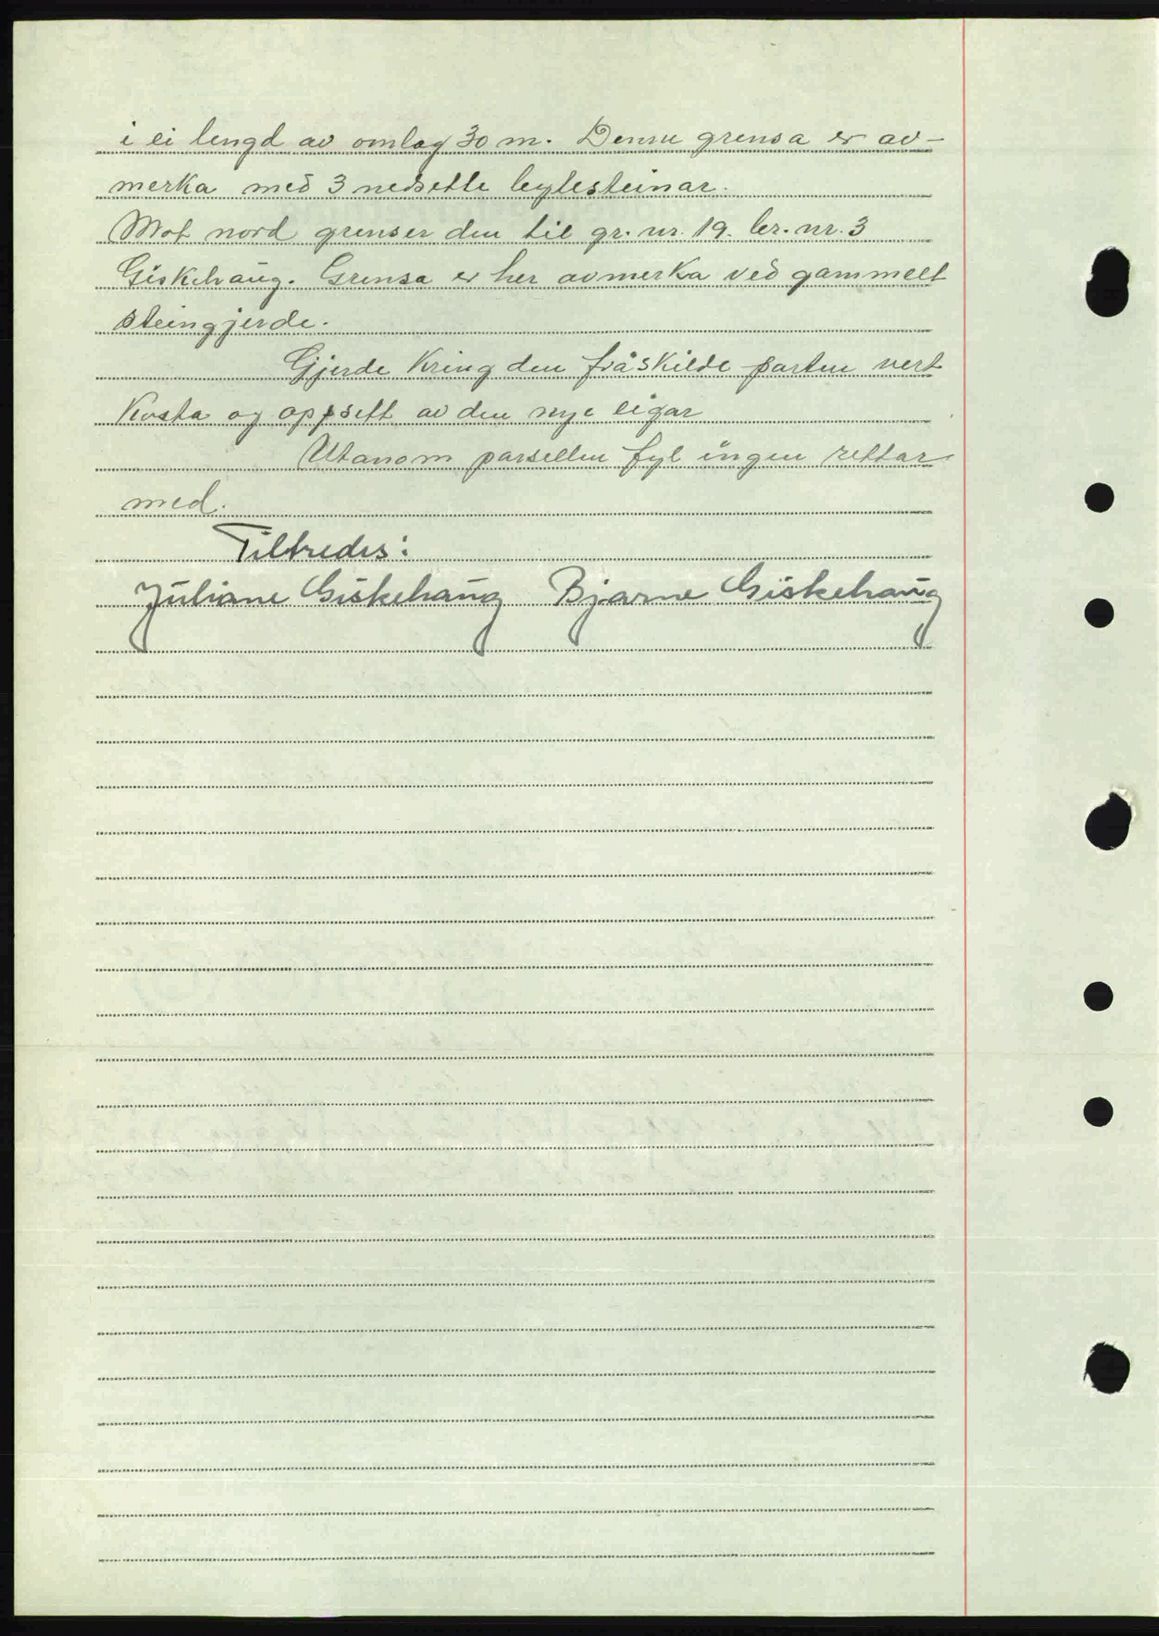 i ei lengd av omlag 30 m. Denne grensa er av-
merka med 3 nedsette bytesteinar.
Mot nord grenser den til gr. nr. 19. br. nr. 3
Giskehaug. Grensa er her avmerka ved gammelt
steingjerde.
Gjerde kring den fråskilde parten vert
kosta og oppsett av den nye eigar
Utanom parsellen fyl ingen rettar
med.
Tiltredes:
Juliane Giskehaug Bjarne Giskehaug